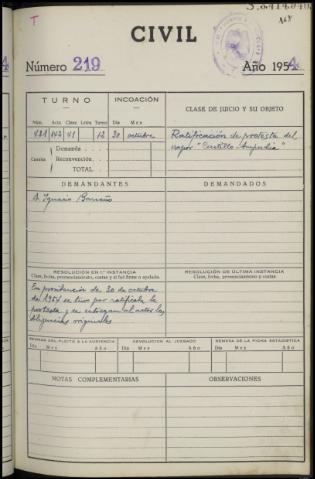 T
CIVIL
Número 219 Año 1954
TURNO INCOACIÓN CLASE DE JUICIO Y SU OBJETO
Núm. Acta Clase Letra Turno Día Mes
12 20 octubre Ratificación de protesta del
vapor "Castillo Ampudia"
Cuantía Demanda
Reconvención
TOTAL
DEMANDANTES DEMANDADOS
D. Ignacio
RESOLUCIÓN EN 1.ª INSTANCIA RESOLUCIÓN DE ÚLTIMA INSTANCIA
Clase, fecha, pronunciamiento, costas y si fué firme o apelada. Clase, fecha, pronunciamiento y costas
En providencia de 30 de octubre
del 1954 se tuvo por ratificada la
protesta y se entregaron al actor las
diligencias originales
REMESA DEL PLEITO A LA AUDIENCIA DEVOLUCIÓN AL JUZGADO REMESA DE LA FICHA ESTADÍSTICA
Día Mes Año Día Mes Año Día Mes Año
NOTAS COMPLEMENTARIAS OBSERVACIONES